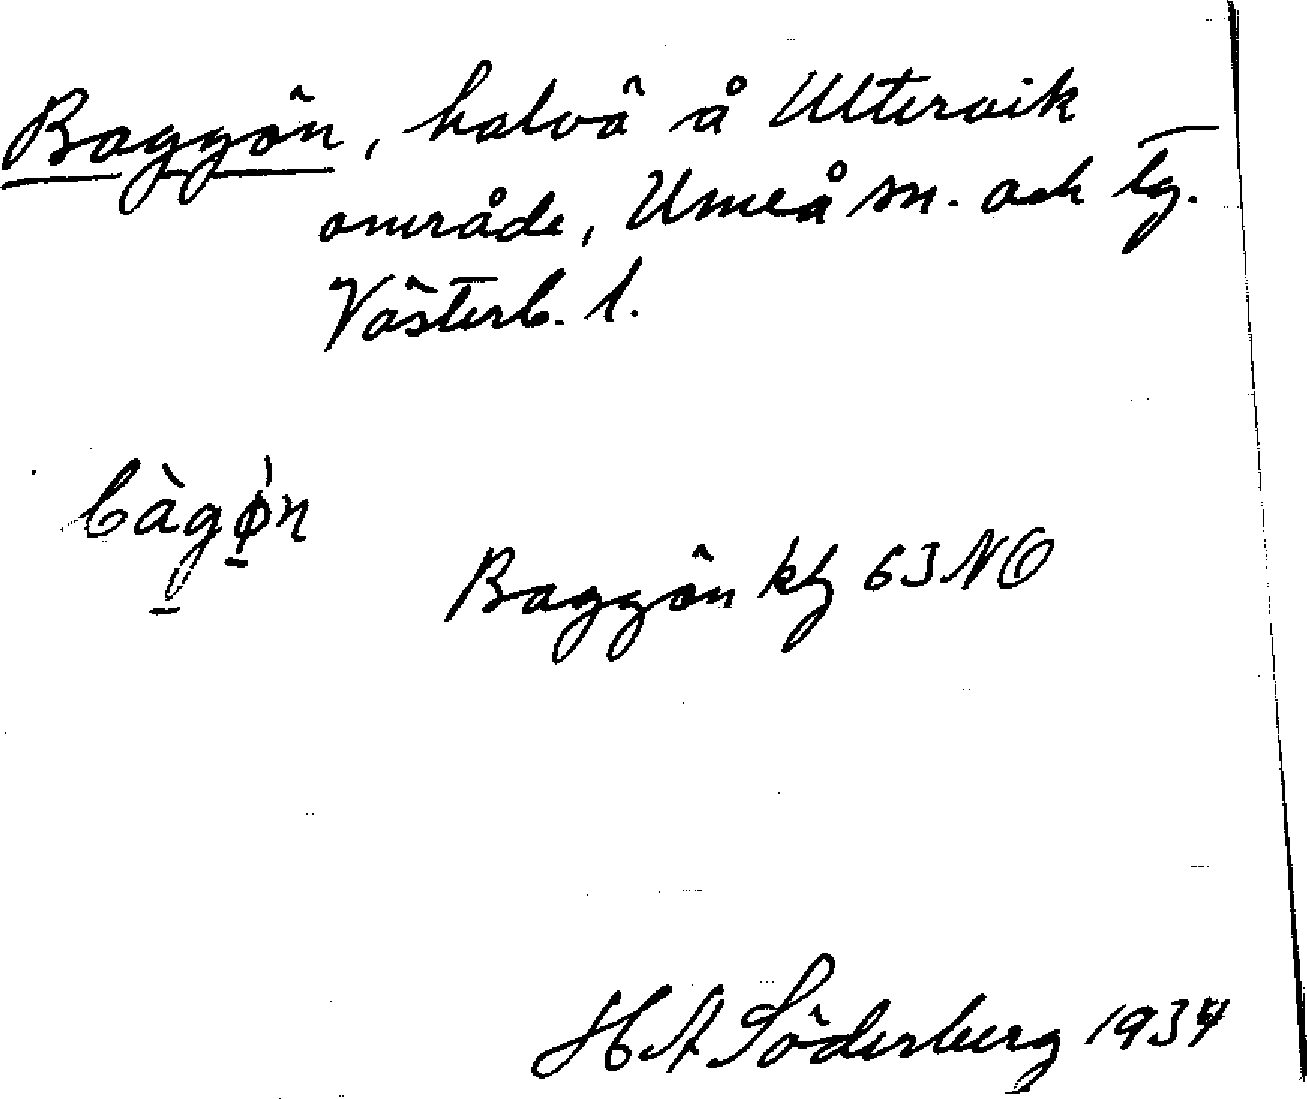 Baggön, halvö å Ultervik
område, Umeå sn. och tg.
Västerb. l.
bàgø̀n
Baggön kbl 63 NO
H A Söderberg 1934